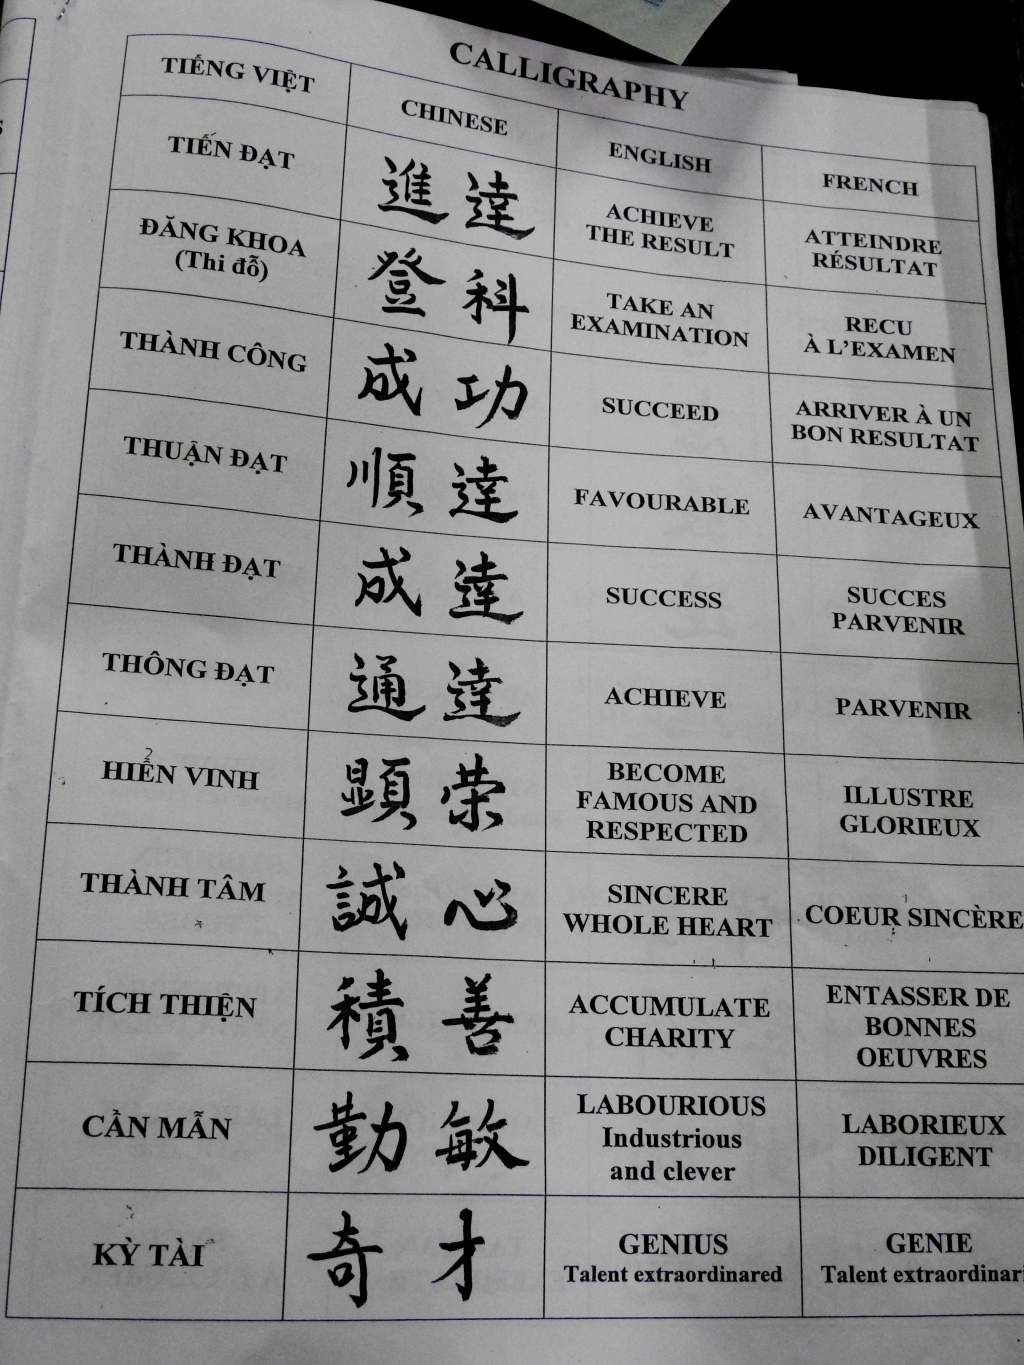 CALLIGRAPHY
TIẾNG VIỆT
CHINESE
ENGLISH
FRENCH
TIẾN ĐẠT
進達
ACHIEVE
THE RESULT
ATTEINDRE
RÉSULTAT
ĐĂNG KHOA
(Thi đỗ)
登科
TAKE AN
EXAMINATION
RECU
À L'EXAMEN
THÀNH CÔNG
成功
SUCCEED
ARRIVER À UN
BON RESULTAT
THUẬN ĐẠT
順達
FAVOURABLE
AVANTAGEUX
THÀNH ĐẠT
成達
SUCCESS
SUCCES
PARVENIR
THÔNG ĐẠT
通達
ACHIEVE
PARVENIR
HIỂN VINH
顕荣
BECOME
FAMOUS AND
RESPECTED
ILLUSTRE
GLORIEUX
THÀNH TÂM
誠心
SINCERE
WHOLE HEART
COEUR SINCÈRE
TÍCH THIỆN
積善
ACCUMULATE
CHARITY
ENTASSER DE
BONNES
OEUVRES
CẦN MẪN
勤敏
LABOURIOUS
Industrious
and clever
LABORIEUX
DILIGENT
KỲ TÀI
奇才
GENIUS
Talent extraordinared
GENIE
Talent extraordinari